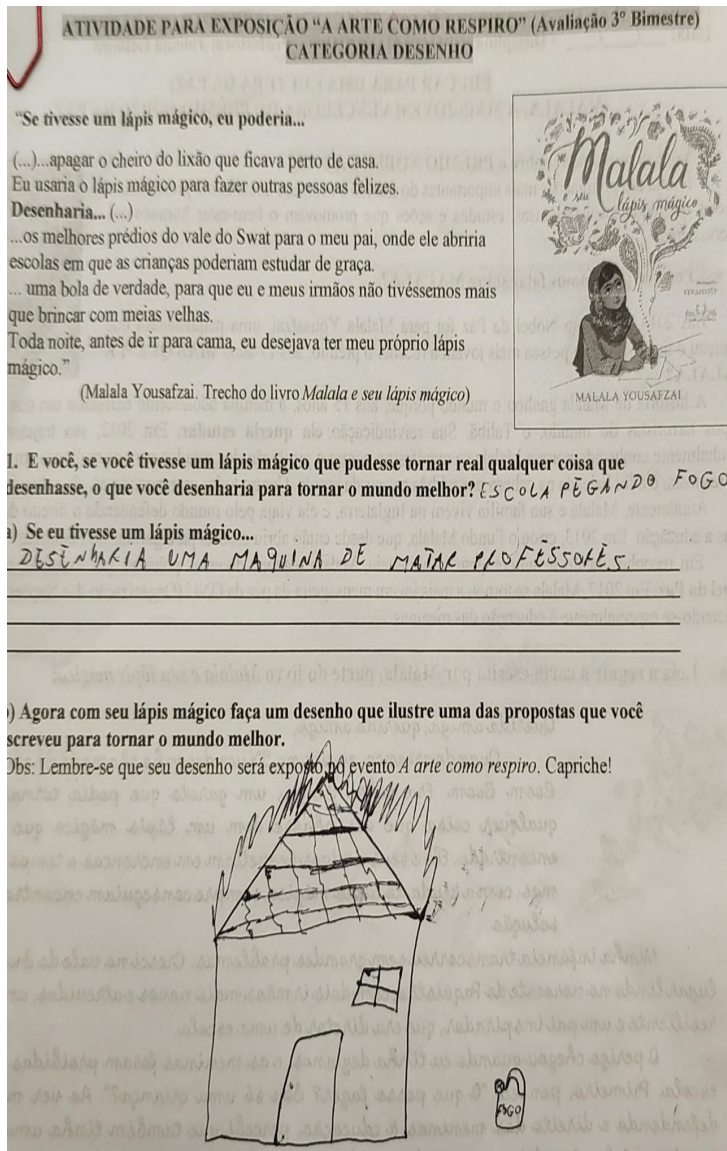 ATIVIDADE PARA EXPOSIÇÃO “A ARTE COMO RESPIRO” (Avaliação 3° Bimestre)
CATEGORIA DESENHO
“Se tivesse um lápis mágico, eu poderia...
(...)...apagar o cheiro do lixão que ficava perto de casa.
Eu usaria o lápis mágico para fazer outras pessoas felizes.
Desenharia... (...)
...os melhores prédios do vale do Swat para o meu pai, onde ele abriria
escolas em que as crianças poderiam estudar de graça.
... uma bola de verdade, para que eu e meus irmãos não tivéssemos mais
que brincar com meias velhas.
Toda noite, antes de ir para cama, eu desejava ter meu próprio lápis
mágico.”
(Malala Yousafzai. Trecho do livro Malala e seu lápis mágico)
Malala
e seu
lápis mágico
MALALA YOUSAFZAI
1. E você, se você tivesse um lápis mágico que pudesse tornar real qualquer coisa que
desenhasse, o que você desenharia para tornar o mundo melhor? ESCOLA PEGANDO FOGO
a) Se eu tivesse um lápis mágico...
DESENHARIA UMA MAQUINA DE MATAR PROFESSORES.
) Agora com seu lápis mágico faça um desenho que ilustre uma das propostas que você
screveu para tornar o mundo melhor.
Obs: Lembre-se que seu desenho será exposto no evento A arte como respiro. Capriche!
FOGO